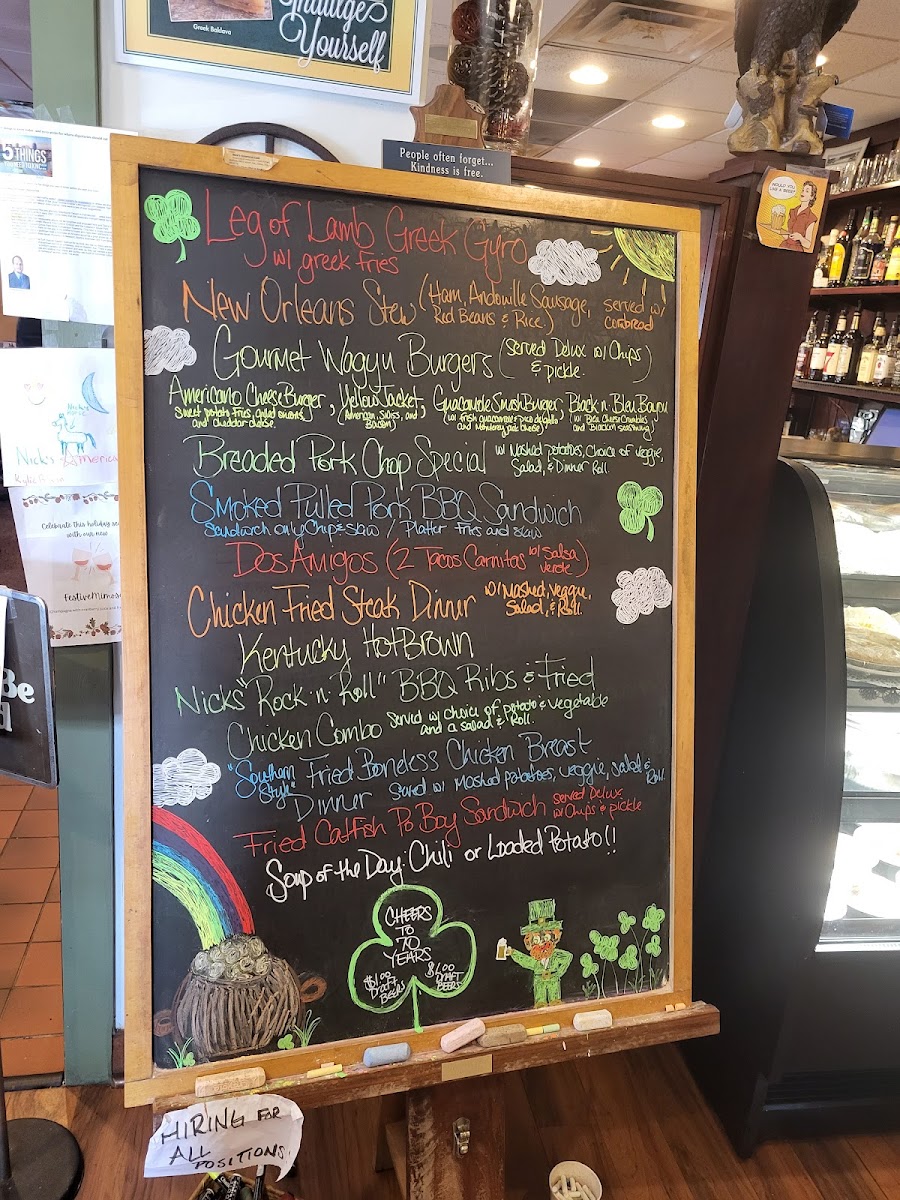 Indulge
Yourself
Greek Baklava
People often forget...
Kindness is free.
5 THINGS
WOULD YOU
LIKE A BEER?
Leg of Lamb Greek Gyro
w/ greek fries
New Orleans Stew (Ham, Andouille Sausage, served w/
Red Beans & Rice) Cornbread
Gourmet Wagyu Burgers (Served Delux w/ Chips
& pickle)
Americano Cheese Burger, Yellow Jacket, Guacamole Smash Burger, Black n Bleu Bayou
Sweet potato fries, grilled onions,
and cheddar cheese.
(American, Swiss, and
Bacon)
and Monterey jack cheese)
(w/ Bleu Cheese Crumbles
and Blacken seasoning)
Breaded Pork Chop Special w/ Mashed potatoes, choice of veggie,
Salad, & Dinner Roll.
Smoked Pulled Pork BBQ Sandwich
Sandwich only Chip & slaw / Platter Fries and slaw
Dos Amigos (2 Tacos Carnitas w/ Salsa
verde)
Chicken Fried Steak Dinner w/ Mashed, veggie,
Salad, & Roll.
Kentucky HotBrown
Nicks "Rock·n·Roll" BBQ Ribs & Fried
Chicken Combo Served w/ choice of potato & vegetable
and a salad & Roll.
"Southern
Style" Fried Boneless Chicken Breast
Dinner Served w/ Mashed potatoes, veggie, salad &
Roll
Fried Catfish Po Boy Sandwich served Delux
w/ Chips & pickle
Soup of the Day: Chili or Loaded Potato!!
CHEERS
TO
70
YEARS
$1.00
Draft
BEERS
$1.00
DRAFT
BEERS
Nick's America
Celebrate this holiday se
with our new
Festive Mimos
Be
d
HIRING FOR
ALL
POSITIONS